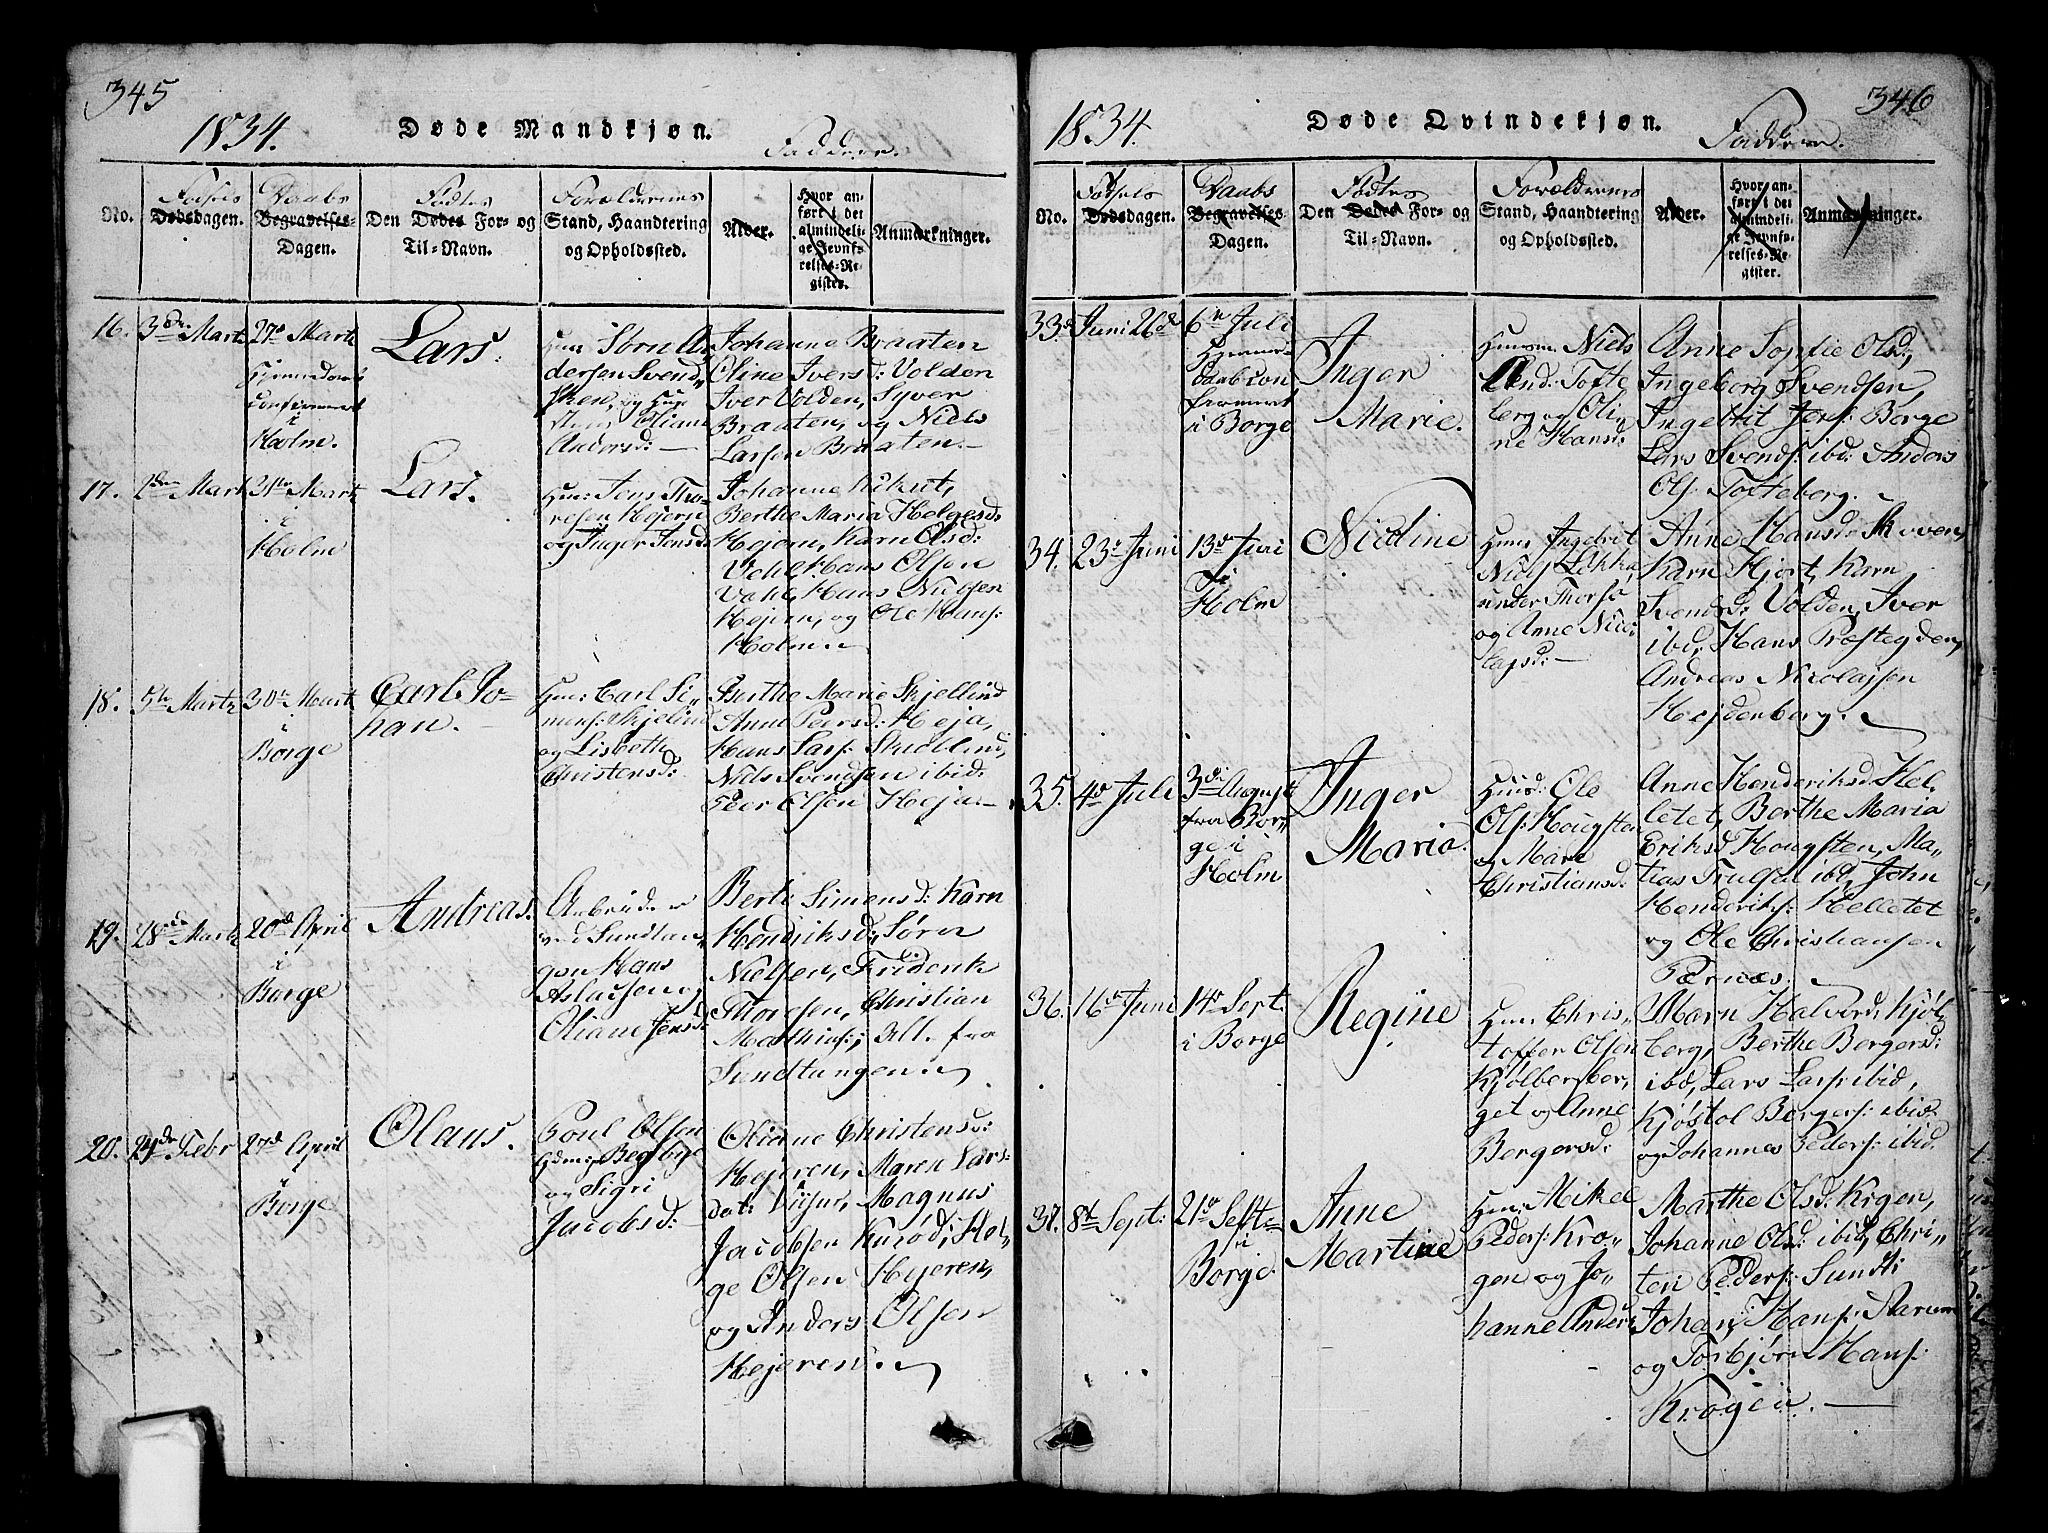 345
1834.
Døde Mandkjøn.
Faddere.
No.
Fødsels
Dødsdagen.
Daabs
Begravelses-
Dagen.
Fødtes
Den Dødes For- og
Til-Navn.
Forældrenes
Stand, Haandtering
og Opholdssted.
Alder.
Hvor an-
ført i det
almindeli-
ge Jevnfø-
relses-Re-
gister.
Anmærkninger.
16. 3die Martz
27de Martz
Hjemmedøbt
confirmeret
i
Holm.
Lars.
Huus Søren An
dersen Svend,
Anders:
Johanne Braaten
Oline Ivers: Volden
Iver Volden, Syver
Braaten, og Niels
Larsen Braaten.
17. Martz
31te Martz
i
Holm
Lars.
Hum: Jens Tho-
resen Hejern
og Inger Jensd.
Johanne
Berthe Maria Helgesd:
Hejern, Karn Olsd:
Vahl, Hans Olsen
Vahl, Hans Nielsen
Hejern, og Ole Hans:
Holm.
18. 5te Martz
30te Martz
i
Borge
Carl Jo-
han.
Hum: Carl Si-
mens: Skjelind
og Lisbeth
Christensd:
Berthe Marie Skjellind
Anne Peersd: Heja,
Hans Lars: Skjellind,
Niels Svendsen ibid.
Peer Olsen Heja.
19. 18de Martz
20de April
i
Borge
Andreas.
ved Sundtan,
gen Hans
Aslaksen og
Oliane Jensd:
Berte Simensd: Karn
Hendriksd: Søren
Nielsen, Friderik
Thoresen, Christian
Mathias:, Alle fra
Sundtangen.
20. 24de Febr
27de April
i
Borge
Olaus.
Poul Olsen
Hum: Begbye
og Sigri
Jacobsd:
Oliane Christensd:
Hejeren, Maren Lars-
dat: Viker, Magnus
Jacobsen Kurød, Hel-
ge Olsen Hejeren,
og Anders Olsen
Hejeren.
346
1834.
Døde Qvindekjøn.
Faddere.
No.
Fødsels
Dødsdagen.
Daabs
Begravelses
Dagen.
Fødtes
Den Dødes For- og
Til-Navn.
Forældrenes
Stand, Haandtering
og Opholdssted.
Alder.
Hvor an-
ført i det
almindeli-
ge Jevnfø-
relses-Re-
gister.
Anmærkninger.
33. Juni 26de
6te Juli
Hjemme-
daab con
firmeret
i Borge
Inger
Marie.
Huusm: Niels
And: Tofte
berg og Oli-
ne Hansd:
Anne Sophie Olsd,
Ingeborg Svendsen,
Ingebrit Jens: Borge
Lars Svends: ibd: Anders
Ols: Tofteberg.
34. 23de Juni
13de Juli
i
Holm
Nicoline
Huus Ingebrit
Niels: Løkka,
under Thorsø
og Anne Nico-
lajsd:
Anne Hansd: Skoven
Karn Hjort, Karn
Svendsd: Volden, Iver
ibd, Hans Præstegden,
Andreas Nicolajsen
Hejdenberg.
35. 4de Juli
3die August
fra Bor-
ge i
Holm
Inger
Maria.
Huus: Ole
Ols: Hougsten
og Mare
Christiansd:
Anne Henderiksd. Hel-
letet, Berthe Maria
Eriksd Hougsten, Ma-
tias Truls: ibd, John
Henderiks: Helletet
og Ole Christiansen
Pærnæs.
36. 16de Juni
14de Sept.
i Borge
Regine
Hum: Chris-
toffer Olsen
Kjølberg
get og Anne
Borgersd:
Marn Halvord, Kjøl-
berg, Berthe Borgersd:
ibd, Lars Lars: ibid,
Kjøstol Borgers: ibid.
og Johannes Peders: ibid.
37. 8de Sept:
21de Sept:
i
Borge.
Anne
Martine
Hum: Mikel
Peders: Kro-
gen og Jo-
hanne Anders:
Marthe Olsd: Krgen,
Johanne Olsd: ibid, Chri-
sten Peders: Sundt:
Johan Hans: Aarum
og Torbjørn Hans:
Krogen.